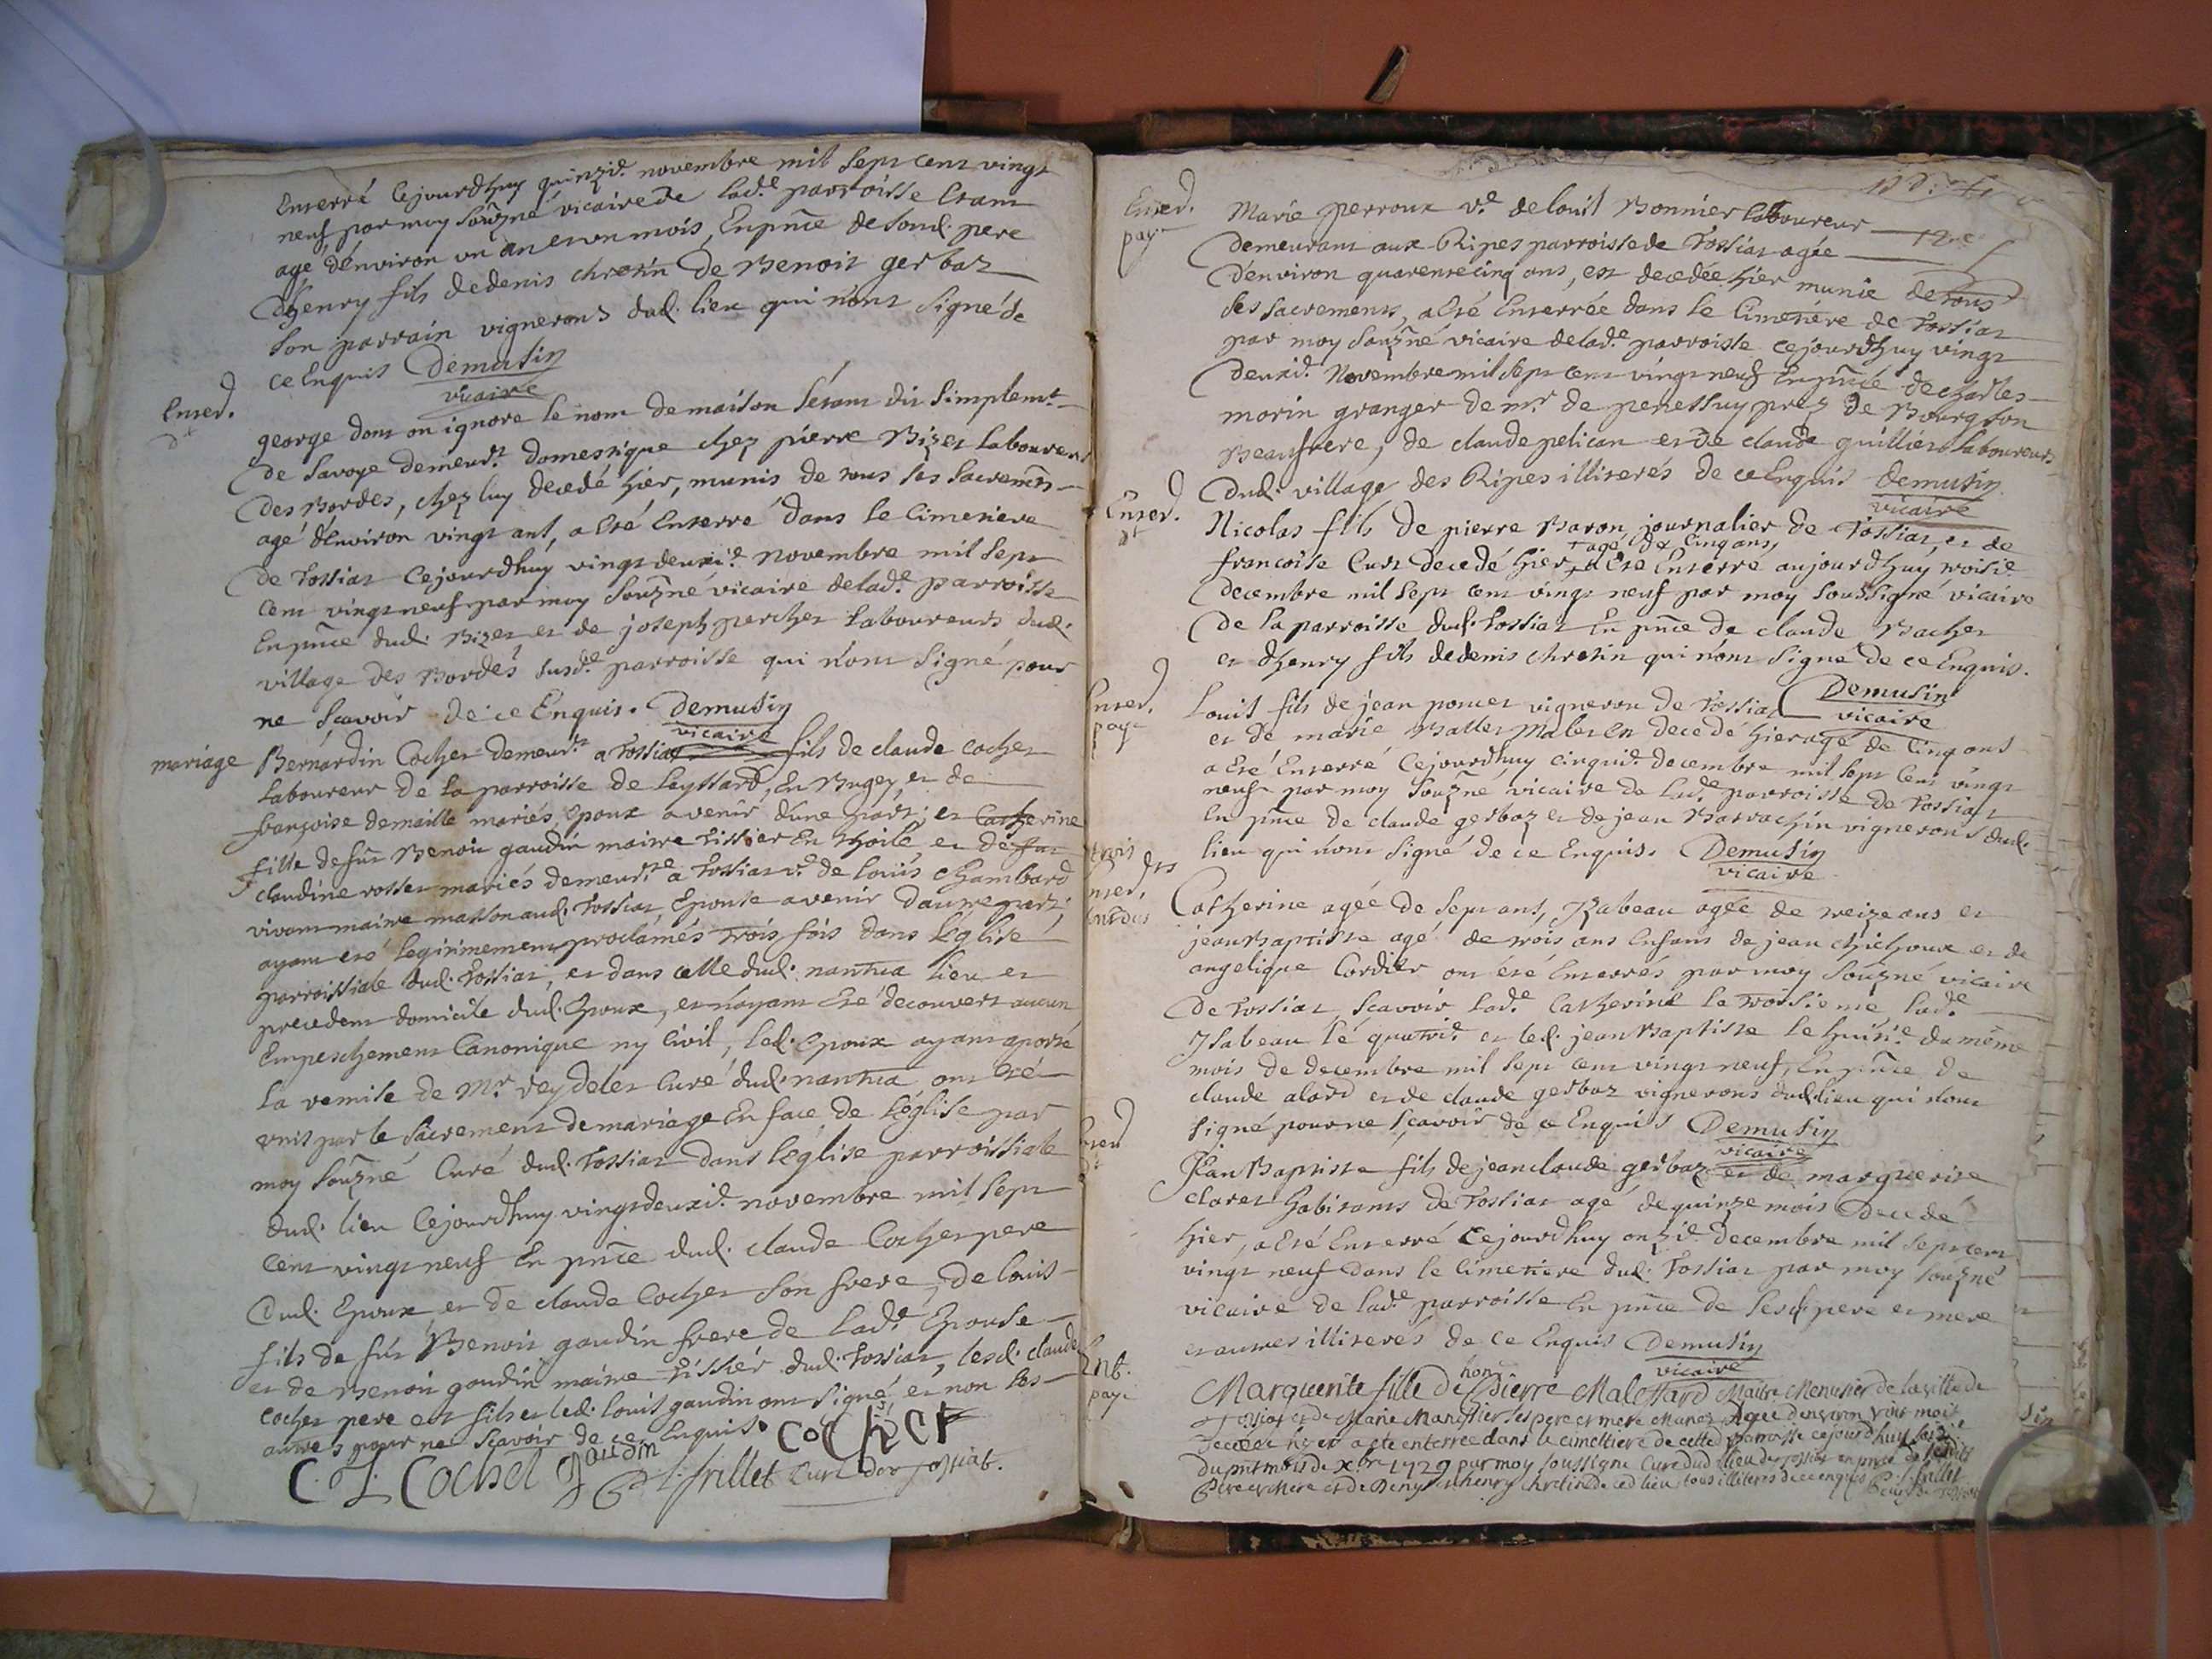 Enterré Cejourdhuy quinzie. novembre mil sept cent vingt
neuf par moy souzné vicaire de lade. parroisse Etant
agé d'énviron un an et un mois, En pnce de Soud. pere
d'henry fils de denis chretin de Benoit gerbaz
Son parrain vignerons dud. lieu qui n'ont signé de
ce Enquis Demusin
vicaire
Enter.
george dont on ignore le nom de maison s'étant dit simplemt.
de Savoye demeurt. domestique chez pierre Bizet laboureur
des Bordes, chez luy decedé hier, munis de tous les sacremts
agé d'énviron vingt ans, a Eté Enterré dans le Cimetiere
de Tossiat Cejourdhuy vingt deuxie. novembre mil sept
cent vingt neuf par moy Souzné vicaire de lade. parroisse
En pnce dud. Bizet et de joseph perchet laboureurs dud.
village des Bordes susde. parroisse qui n'ont signé pour
ne scavoir de ce Enquis. Demusin
vicaire
mariage Bernardin Cochet demeurt. a Tossiat fils de claude cochet
laboureur de la parroisse de Leyssard, En Bugey, et de
françoise demaille mariés, Epoux avenir d'une part; et Catherine
fille de fut Benoit gaudin maitre tissier En thoile et de fut
claudine rosset mariés demeurte. a Tossiat ve. de Louis chambard
vivant maitre masson aud. Tossiat, Epouse avenir d'autre part;
ayant eté legitimement proclamés trois fois dans l'église
parroissiale dud. Tossiat, et dans celle dud. nantua lieu et
precedent domicile dud. Epoux, et n'ayant Eté decouvert aucun
Empeschement Canonique ny Civil, led. Epoux ayant aporté
la remise de Mr. reydelet Curé dud. nantua ont eté
unis par le sacrement de mariage En face de l'église par
moy souzné Curé dud. Tossiat dans l'église parroissiale
dud. lieu Cejourdhuy vingt deuxie. novembre mil sept
cent vingt neuf En pnce dud. claude Cochet pere
dud. Epoux et de claude Cochet son frere, de louis
fils de fut Benoit gaudin frere de lade. Epouse
et de Benoit gaudin maitre tissier dud. Tossiat, lesd. claude
cochet pere et fils et led. louis gaudin ont signé, et non les
autres pour ne scavoir de ce Enquis. cochet
C. Cochet gaudin frillet curé de tossiat.
Enter.
paye
Marie perroux ve. de louis Bonnier laboureur
demeurant aux Ripes parroisse de Tossiat agée
d'énviron quarente cinq ans, est decedée hier munie de tous
les sacrements, a Eté Enterrée dans le Cimetiére de Tossiat
par moy souzné vicaire de lade. parroisse cejourdhuy vingt
deuxie. Novembre mil sept cent vingt neuf En pnce de charles
morin granger de mr. de peressuy prez de Bourg son
Beaufrere, de claude pelican et de claude guillier laboureurs
dud. village des Ripes illiterés de ce Enquis Demusin
vicaire
Enter.
Nicolas fils de pierre Baron journalier de Tossiat, et de
agé de cinq ans,
francoise Curt decedé hier a Eté Enterré aujourdhuy troisie.
decembre mil sept cent vingt neuf par moy soussigné vicaire
de la parroisse dud. Tossiat En pnce de claude Bachet
et d'henry fils de denis chretin qui n'ont signé de ce Enquis.
Demusin
vicaire
Enter.
paye
Louis fils de jean poncet vigneron de Tossiat
et de marie decedé hier agé de Cinq ans
a Eté Enterré Cejourdhuy cinquie. decembre mil sept cent vingt
neuf par moy souzné vicaire de lade. parroisse de Tossiat
En pnce de claude gerbaz et de jean Barrachin vignerons dud.
lieu qui n'ont signé de ce Enquis. Demusin
vicaire
trois
Catherine agée de sept ans, Izabeau agée de treize ans et
jean Baptiste agé de trois ans Enfans de jean chichoux et de
angelique Cordier ont été Enterrés par moy souzné vicaire
de Tossiat, Scavoir lade. Catherine la troisieme, lade.
Isabeau le quatrie. et led. jean Baptiste le huitie. du même
mois de decembre mil sept cent vingt neuf, En pnce de
claude alard et de claude gerbaz vignerons dud. lieu qui n'ont
signé pour ne sçavoir de ce Enquis Demusin
vicaire
Jean Baptiste fils de jean claude gerbaz et de marguerite
claret habitants de Tossiat agé de quinze mois decedé
hier, a Eté Enterré Cejourdhuy onzie. decembre mil sept cent
vingt neuf dans le Cimetiere dud. Tossiat par moy souzné
vicaire de lade. parroisse En pnce de sesd. pere et mere
et autres illiterés de ce Enquis Demusin
vicaire
Ent.
paye
Marguerite fille de hon Pierre Malossard Maitre Menusier de la ville de
Tossiat et de Marie ses pere et mere Mariez Agée d'environ trois mois
decedee hyer a ete enterrée dans le cimettiere de cette parroisse cejourdhuy
du pnt mois de xbre 1729 par moy soussigné Curé dud lieu de tossiat en pnce de
Pere et Mere et de Deny et henry chretin de ced lieu tous illiteres de ce enquis frillet